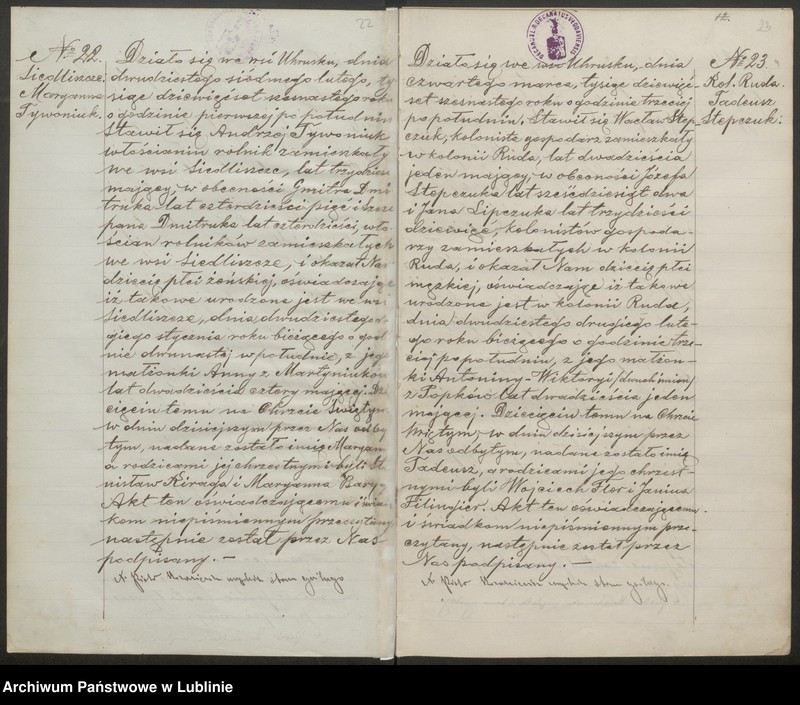 22
№ 22.
Siedliszcze
Maryanna
Tywoniuk.
Działo się we wsi Uhrusku, dnia
dwudziestego siódmego lutego, ty-
siąc dziewięćset szesnastego roku
o godzinie pierwszej po południu
Stawił się Andrzej Tywoniuk
włościanin rolnik zamieszkały
we wsi Siedliszcze, lat trzydzieści
mający, w obecności Gmitra Dmi
truka lat czterdzieści pięć i Szcze
pana Dmitruka lat czterdzieści, wło
ścian rolników zamieszkałych
we wsi Siedliszcze, i okazał Nam
dziecię płci żeńskiej, oświadczając
iż takowe urodzone jest we wsi
Siedliszcze, dnia dwudziestego
giego stycznia roku bieżącego o godzi
nie dwunastej w południe, z jego
małżonki Anny z Martyniuków
lat dwadzieścia cztery mającej. Dzie
cięciu temu na Chrzcie Świętym
w dniu dzisiejszym przez Nas odby
tym, nadane zostało imię Maryanna
a rodzicami jej chrzestnymi byli St
nisław Kiraga i Maryanna
Akt ten oświadczającemu i świad
kom niepiśmiennym przeczytany
następnie został przez Nas
podpisany. —
23
Działo się we wsi Uhrusku, dnia
czwartego marca, tysiąc dziewięć-
set szesnastego roku o godzinie trzeciej
po południu, Stawił się Wacław Step-
czuk, kolonista gospodarz zamieszkały
w kolonii Ruda, lat dwadzieścia
jeden mający, w obecności Józefa
Stepczuka lat sześćdziesiąt dwa
i Jana Lipczuka lat trzydzieści
dziewięć, kolonistów gospoda-
rzy zamieszkałych w kolonii
Ruda, i okazał Nam dziecię płci
męzkiej, oświadczając iż takowe
urodzone jest w kolonii Ruda,
dnia dwudziestego drugiego lute-
go roku bieżącego o godzinie trze-
ciej po południu, z jego małżon-
ki Antoniny-Wiktoryi /dwuch imion/
z Popków lat dwadzieścia jeden
mającej. Dziecięciu temu na Chrzcie
Świętym, w dniu dzisiejszym przez
Nas odbytym, nadane zostało imię
Tadeusz, a rodzicami jego chrzest-
nymi byli Wojciech Flor i Janina
Filingier. Akt ten oświadczającemu
i świadkom niepiśmiennym prze-
czytany, następnie został przez
Nas podpisany. —
№ 23.
Kol. Ruda.
Tadeusz
Stepczuk.
Archiwum Państwowe w Lublinie